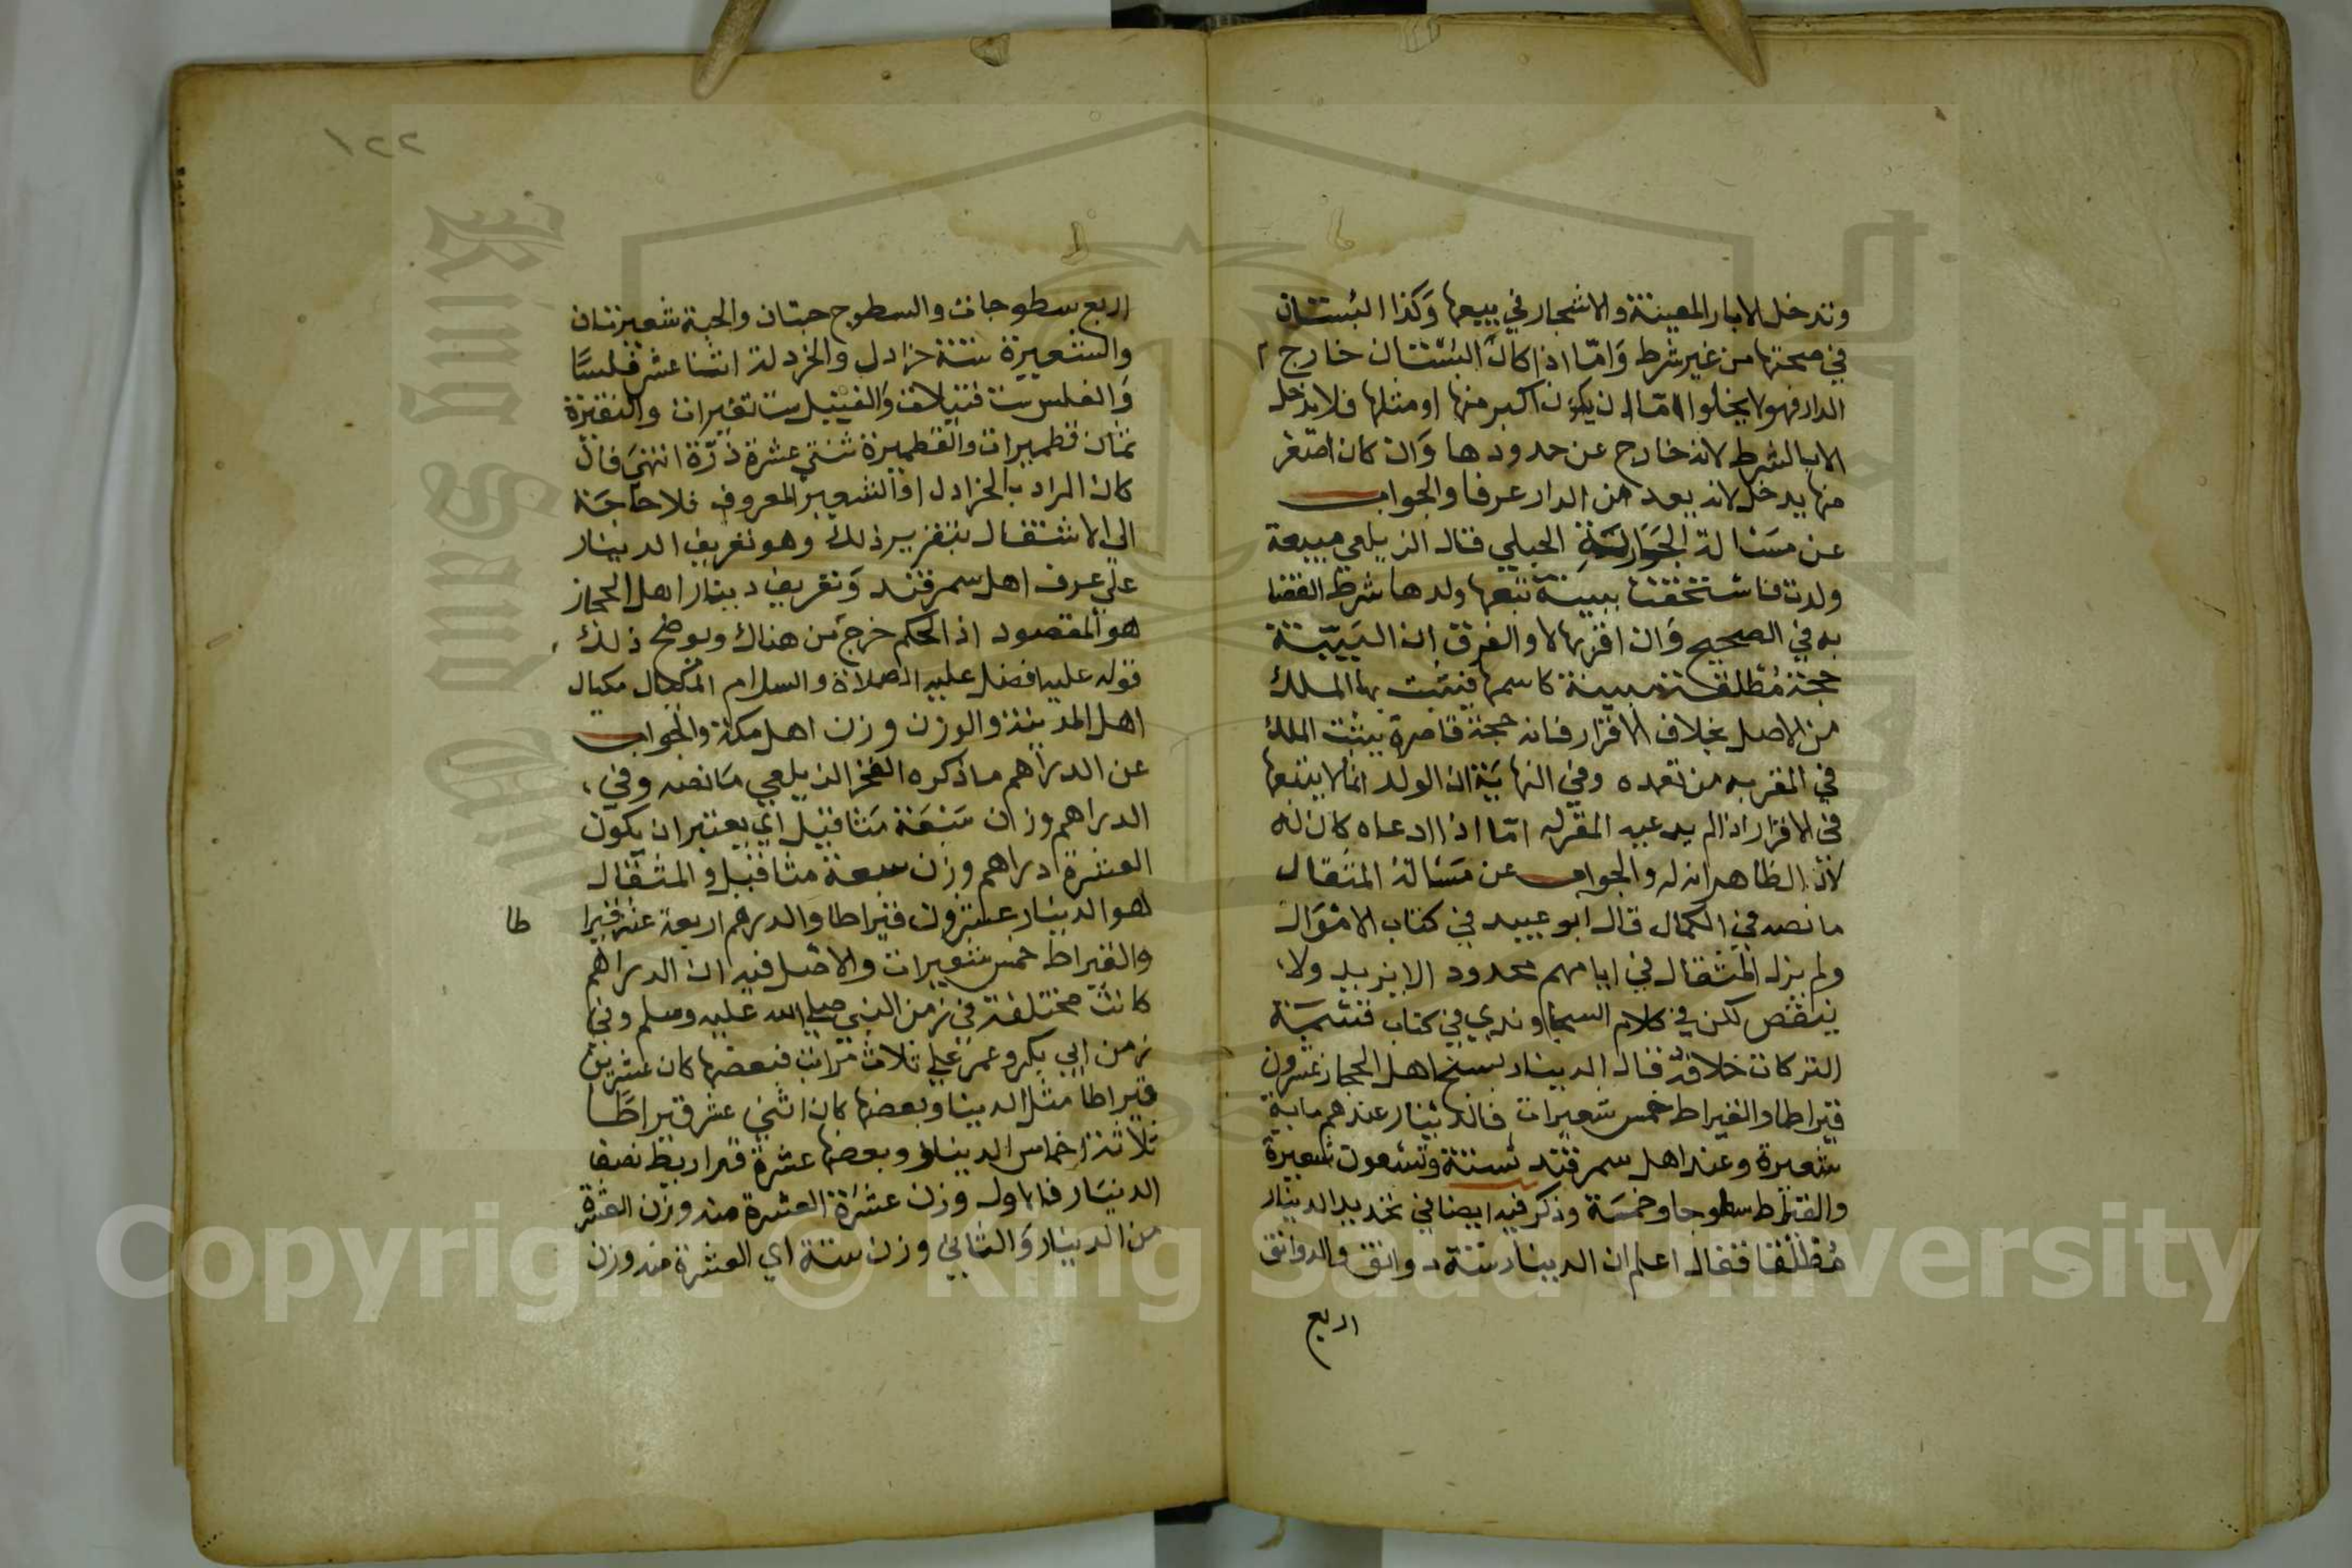 وتدخل الابار المعينة والاشجار في بيعها وَكذا البُستان
في صحتها من غير شرط وَامّا اذا كانَ البُستان خارج
الدار فهو لا يخلوا امّا ان يكون اكبر منها او مثلها فلا يدخل
الا بالشرط لانه خارج عن حدودها وَان كان اصغر
منها يدخل لانه يعد من الدار عرفا والجواب
عن مسَئالة الجَوارِيَةِ الحبلي قال الزيلعي مبيعة
ولدت فاستحقت ببينة تبعها ولدها بشرط القضا
به في الصحيح وَان اقر بها لا والفرق ان البَيّنة
حجة مُطلقة مبينة كاسمها فيثبت بها الملك
من الاصل بخلاف الاقرار فانه حجة قاصرة يثبت الملك
في المقر به من بعده وفي النهايَة ان الولد انما لا يتبعها
في الاقرار اذا لم يدعيه المقرله امّا اذا ادعاه كان له
لانّ الظاهر انه له والجواب عن مَسئالة المثقال
ما نصه في الكمال قال ابو عبيد في كتاب الامْوَال
ولم يزل المثقال في ايامهم محدود الا يزيد ولا
ينقص لكن في كلام السجاوندي في كتاب قسْمَة
التركات خلافه قال الدينار بسنج اهل الحجاز عشرون
قيراطا والقيراط خمس شعيرات فالدينار عندهم ماية
شعيرة وعند اهل سمرقند ستة وتسعون شعيرة
والقيراط سطوجا وخمسَة وذكر فيه ايضا في تحديد الدينار
مُطلقا فقال اعلم ان الدينار ستة دوانق والدوانق
اربع
١٢٢
اربع سطوجات والسطوج حبتان والحبة شعيرتان
والشعيرة ستة خرادل والخردلة اثنا عشر فلسًا
وَالفلس ست فتيلات وَالفتيل ست نقيرات والنقيرة
ثمان قطميرات والقطميرة ثنتي عشرة ذرّة انتهيَ فان
كان المراد بالخرادل او الشعير المعروف فلا حَاجَة
الى الاشتغال بتقرير ذلك وهو تعريف الدينار
على عرف اهل سمرقند وَتعريف دينار اهل الحجاز
هو المقصود اذ الحكم خرج من هناك ويوضح ذلك
قوله عليه افضل عليه الصلاة والسلام المكيال مكيال
اهل المدينة والوزن وزن اهل مكة والجواب
عن الدراهم ما ذكره الفخر الزيلعي مَا نصه وفي
الدراهم وزان سَبْعَة مثاقيل اي يعتبر ان يكون
العشرة ادراهم وزن سبعة مثاقيل والمثقال
لهو الدينار عشرون قيراطا وَالدرهم اربعة عشر قيرا
طا
والقيراط خمس شعيرات والاصل فيه ان الدراهم
كانت مختلفة في زمن النبي صلي الله عليه وسلم وفي
زمن ابي بكر وعمر علي ثلاث مراتب فبعضها كان عشرين
قيراطا مثل الدينار وبعضها كان اثني عشر قيراطًا
ثلاثة اخماس الدينار وبعضها عشرة قراريط نصف
الدنيَار فالاول وزن عشرَة العشرة منه وزن العشرة
من الدينار وَالثاني وزن ستة اي العشرة منه وزن
Copyright © King Saud University